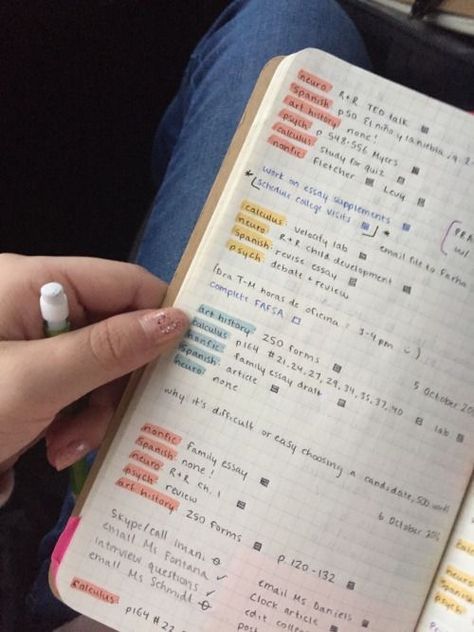 neuro: R+R TED talk
spanish: p50 El niño y la niebla,
art history: none!
psych: p 548-556 Myers
calculus: study for quiz
nonfic: Fletcher Levy
* work on essay supplements
schedule college visits *
calculus: velocity lab email file to Farha
neuro: R+R child development
spanish: revise essay
psych: debate + review
(Dra T-M horas de oficina: 3-4 pm :) )
complete FAFSA
5 October
art history: 250 forms
calculus: p164 #21, 24, 27, 29, 34, 35, 37, 40 lab
nonfic: family essay draft
spanish: article
neuro: none
why it's difficult or easy choosing a candidate, 500 words
6 October 2016
nonfic: family essay
spanish: none!
neuro: R+R ch. 1
psych: review p. 120-132
art history: 250 forms
Skype/call Imani
email Ms Fontana
interview questions
email Ms Schmidt
email Ms Daniels
clock article
edit
post
calculus: p164 #22
neuro
spanish
psych